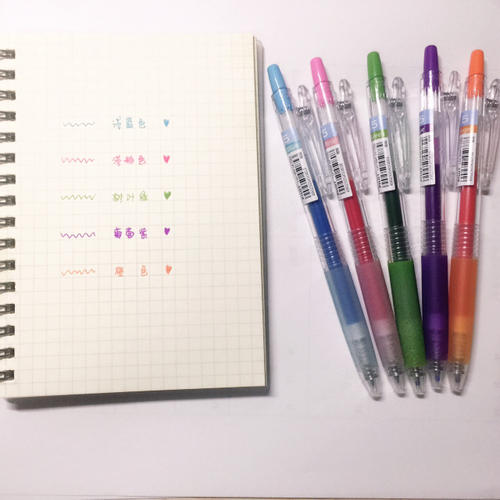 浅蓝色
浅粉色
树叶绿
葡萄紫
橙色
5
5
5